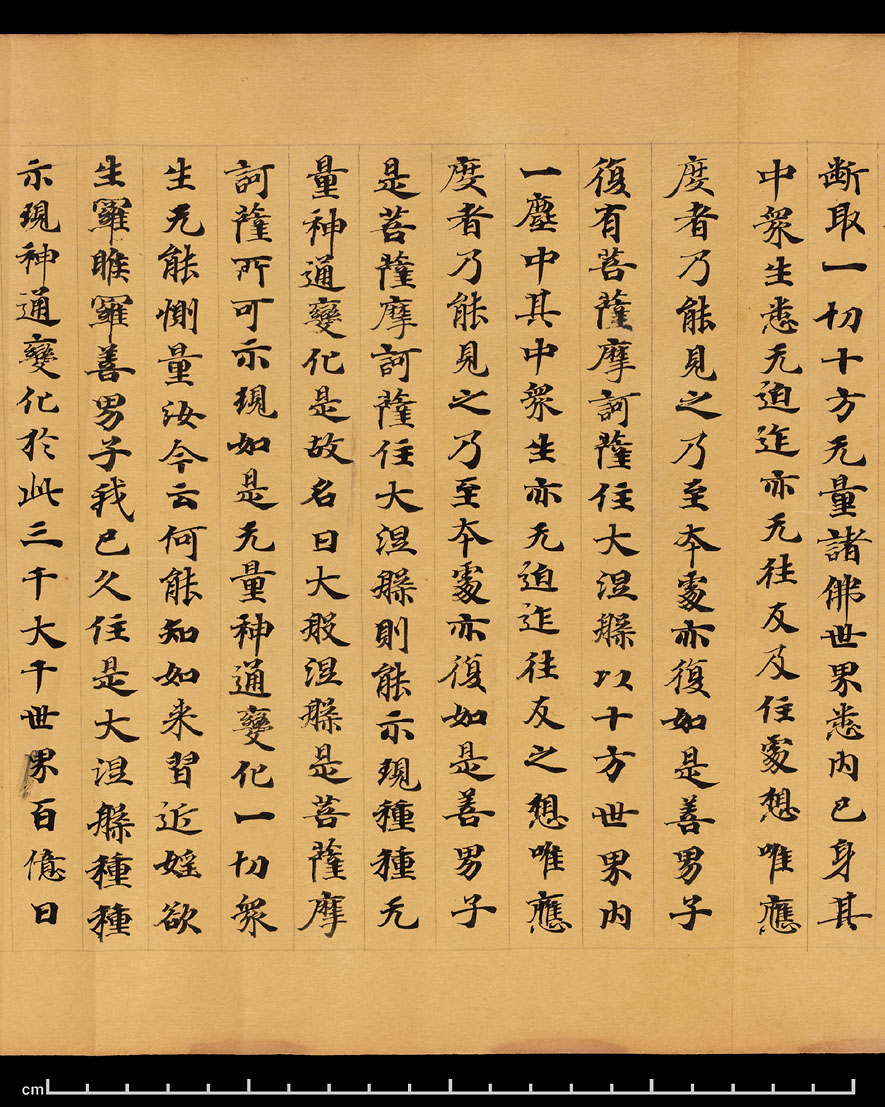 斷取一切十方无量諸佛世界悉内己身其
中衆生悉无迫迮亦无往反及住處想唯應
度者乃能見之乃至本處亦復如是善男子
復有菩薩摩訶薩住大涅槃以十方世界内
一塵中其中衆生亦无迫迮往反之想唯應
度者乃能見之乃至本處亦復如是善男子
是菩薩摩訶薩住大涅槃則能示現種種无
量神通變化是故名曰大般涅槃是菩薩摩
訶薩所可示現如是无量神通變化一切衆
生无能惻量汝今云何能知如来習近婬欲
生羅睺羅善男子我已久住是大涅槃種種
示現神通變化於此三千大千世界百億日
cm